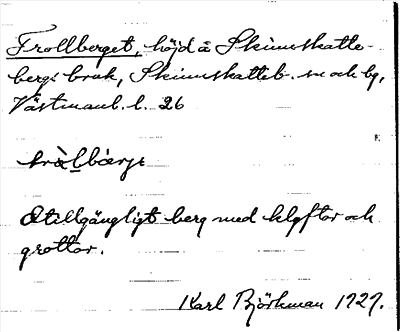 Trollberget, höjd å Skinnskatte-
bergs bruk, Skinnskatteb. sn och bg,
Västmanl. l. 26
tràlbærje
Otillgängligt berg med klyftor och
grottor.
Karl Björkman 1927.